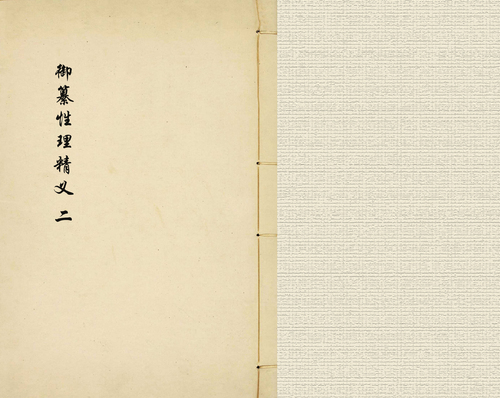 御纂性理精义 二